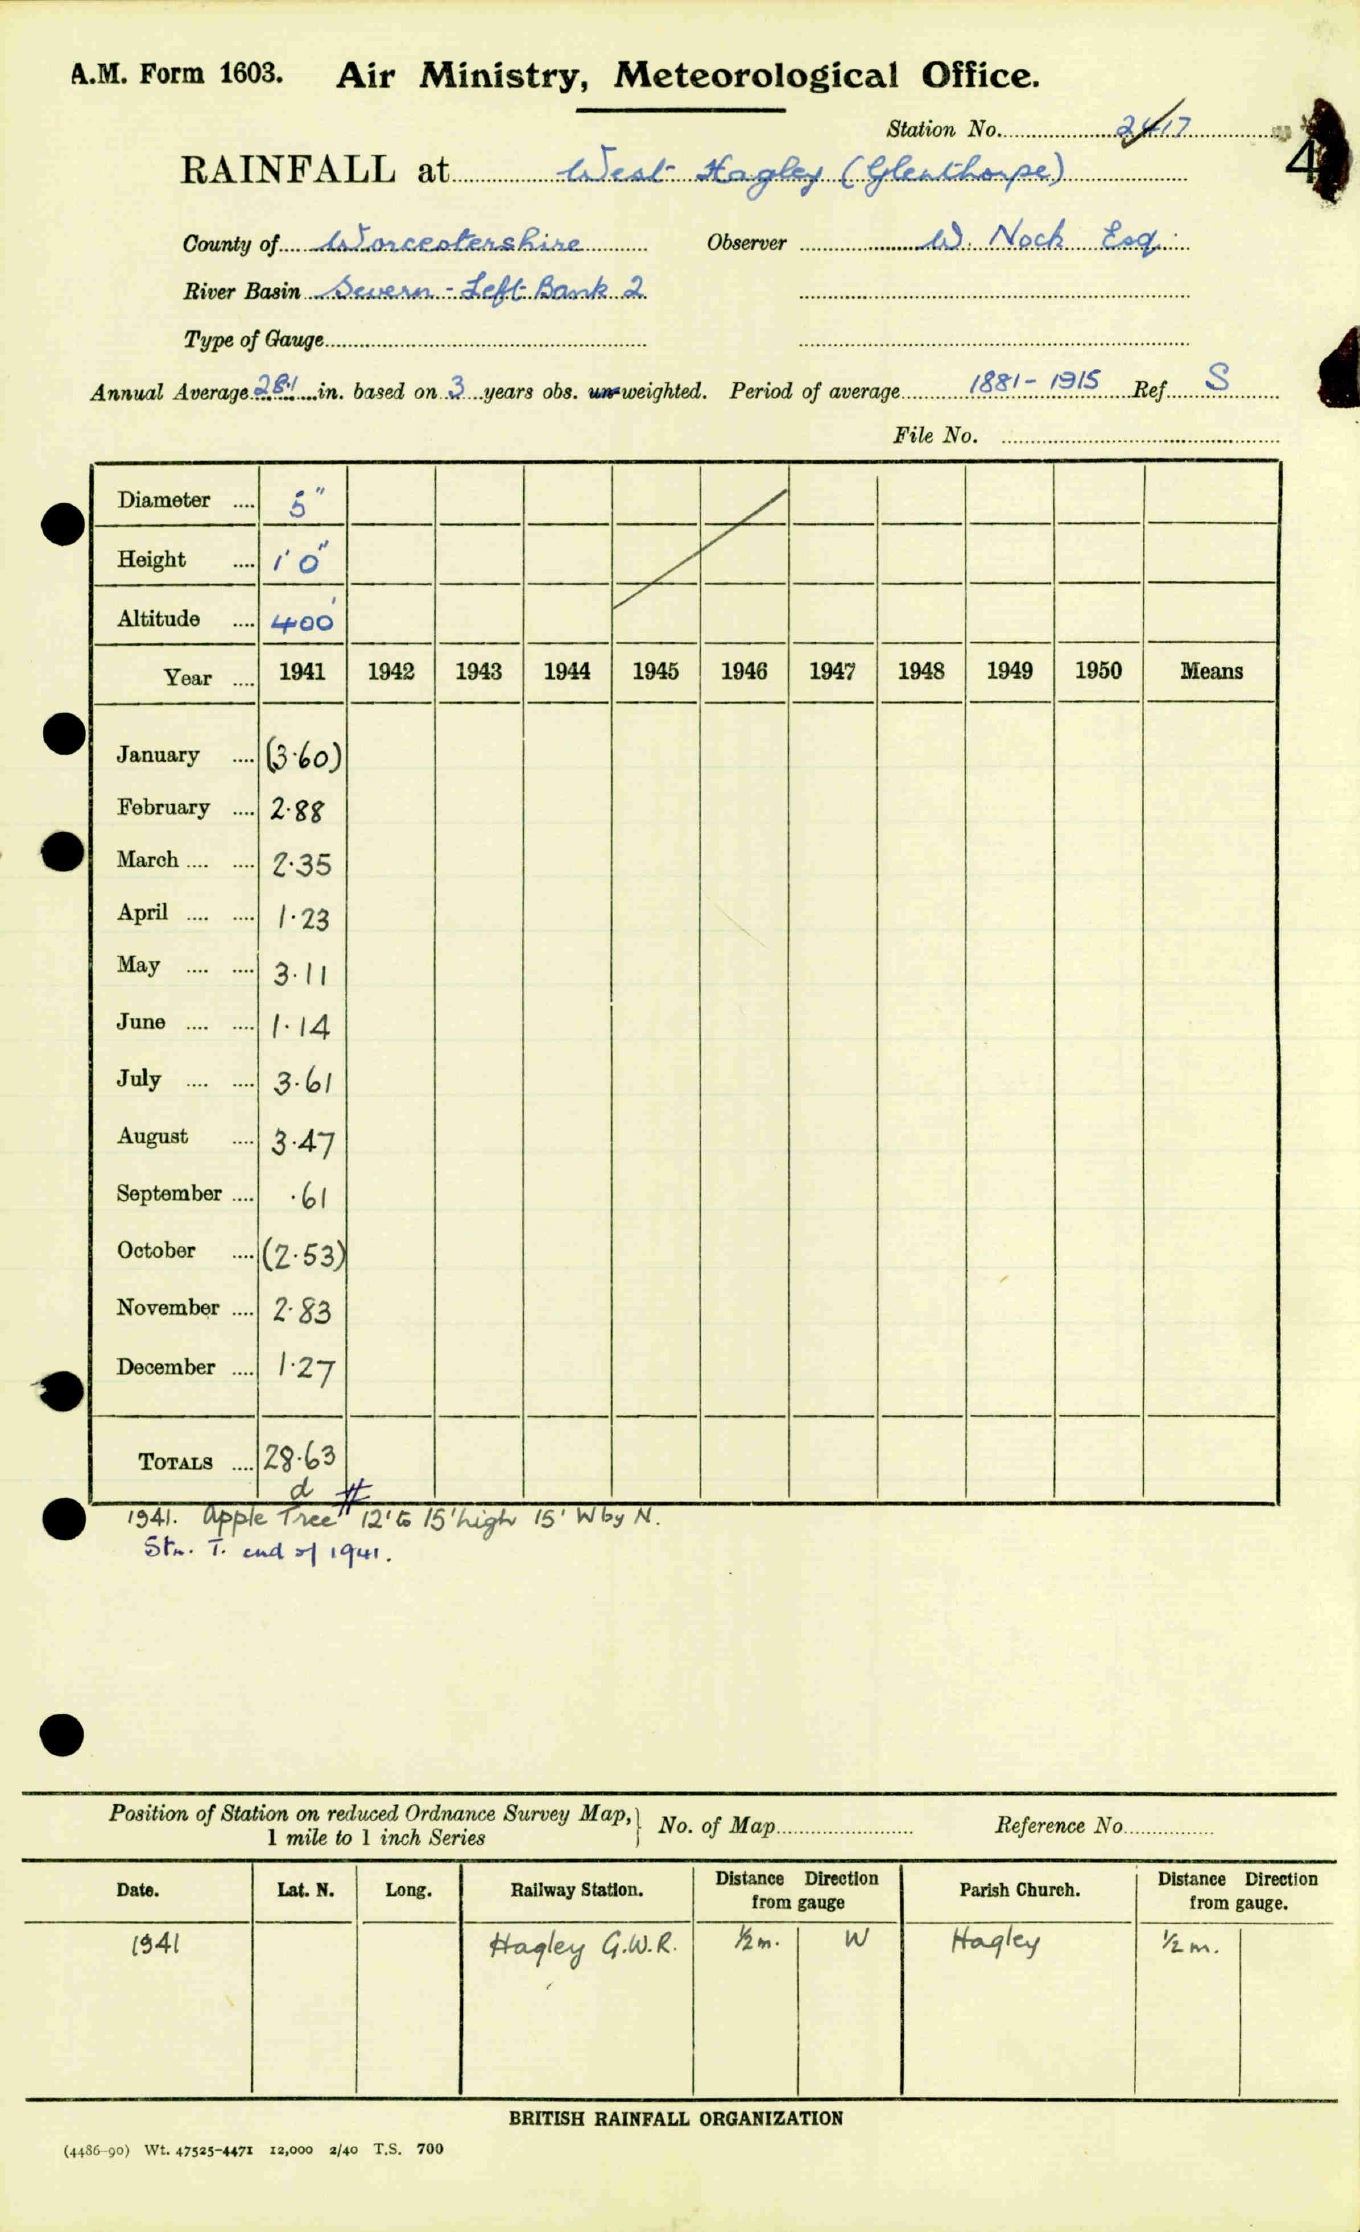 A.M. Form 1603. Air Ministry, Meteorological Office.
Station No. 2417
4
RAINFALL at West Hagley (Glenthorpe)
County of Worcestershire Observer W. Nock Esq.
River Basin Severn - Left Bank 2
Type of Gauge
Annual Average 28.1 in. based on 3 years obs. un-weighted. Period of average 1881-1915 Ref. S
File No.
Diameter .... 5"
Height .... 1' 0"
Altitude .... 400'
Year .... 1941 1942 1943 1944 1945 1946 1947 1948 1949 1950 Means
January .... (3.60)
February .... 2.88
March .... .... 2.35
April .... .... 1.23
May .... .... 3.11
June .... .... 1.14
July .... .... 3.61
August .... 3.47
September .... .61
October .... (2.53)
November .... 2.83
December .... 1.27
TOTALS .... 28.63
d #
1941. Apple Tree 12' to 15' high 15' W by N.
Stn. T. end of 1941.
Position of Station on reduced Ordnance Survey Map, 1 mile to 1 inch Series } No. of Map Reference No.
Date. Lat. N. Long. Railway Station. Distance Direction from gauge Parish Church. Distance Direction from gauge.
1941 Hagley G.W.R. ½ m. W Hagley ½ m.
BRITISH RAINFALL ORGANIZATION
(4486-90) Wt. 47525-4471 12,000 2/40 T.S. 700